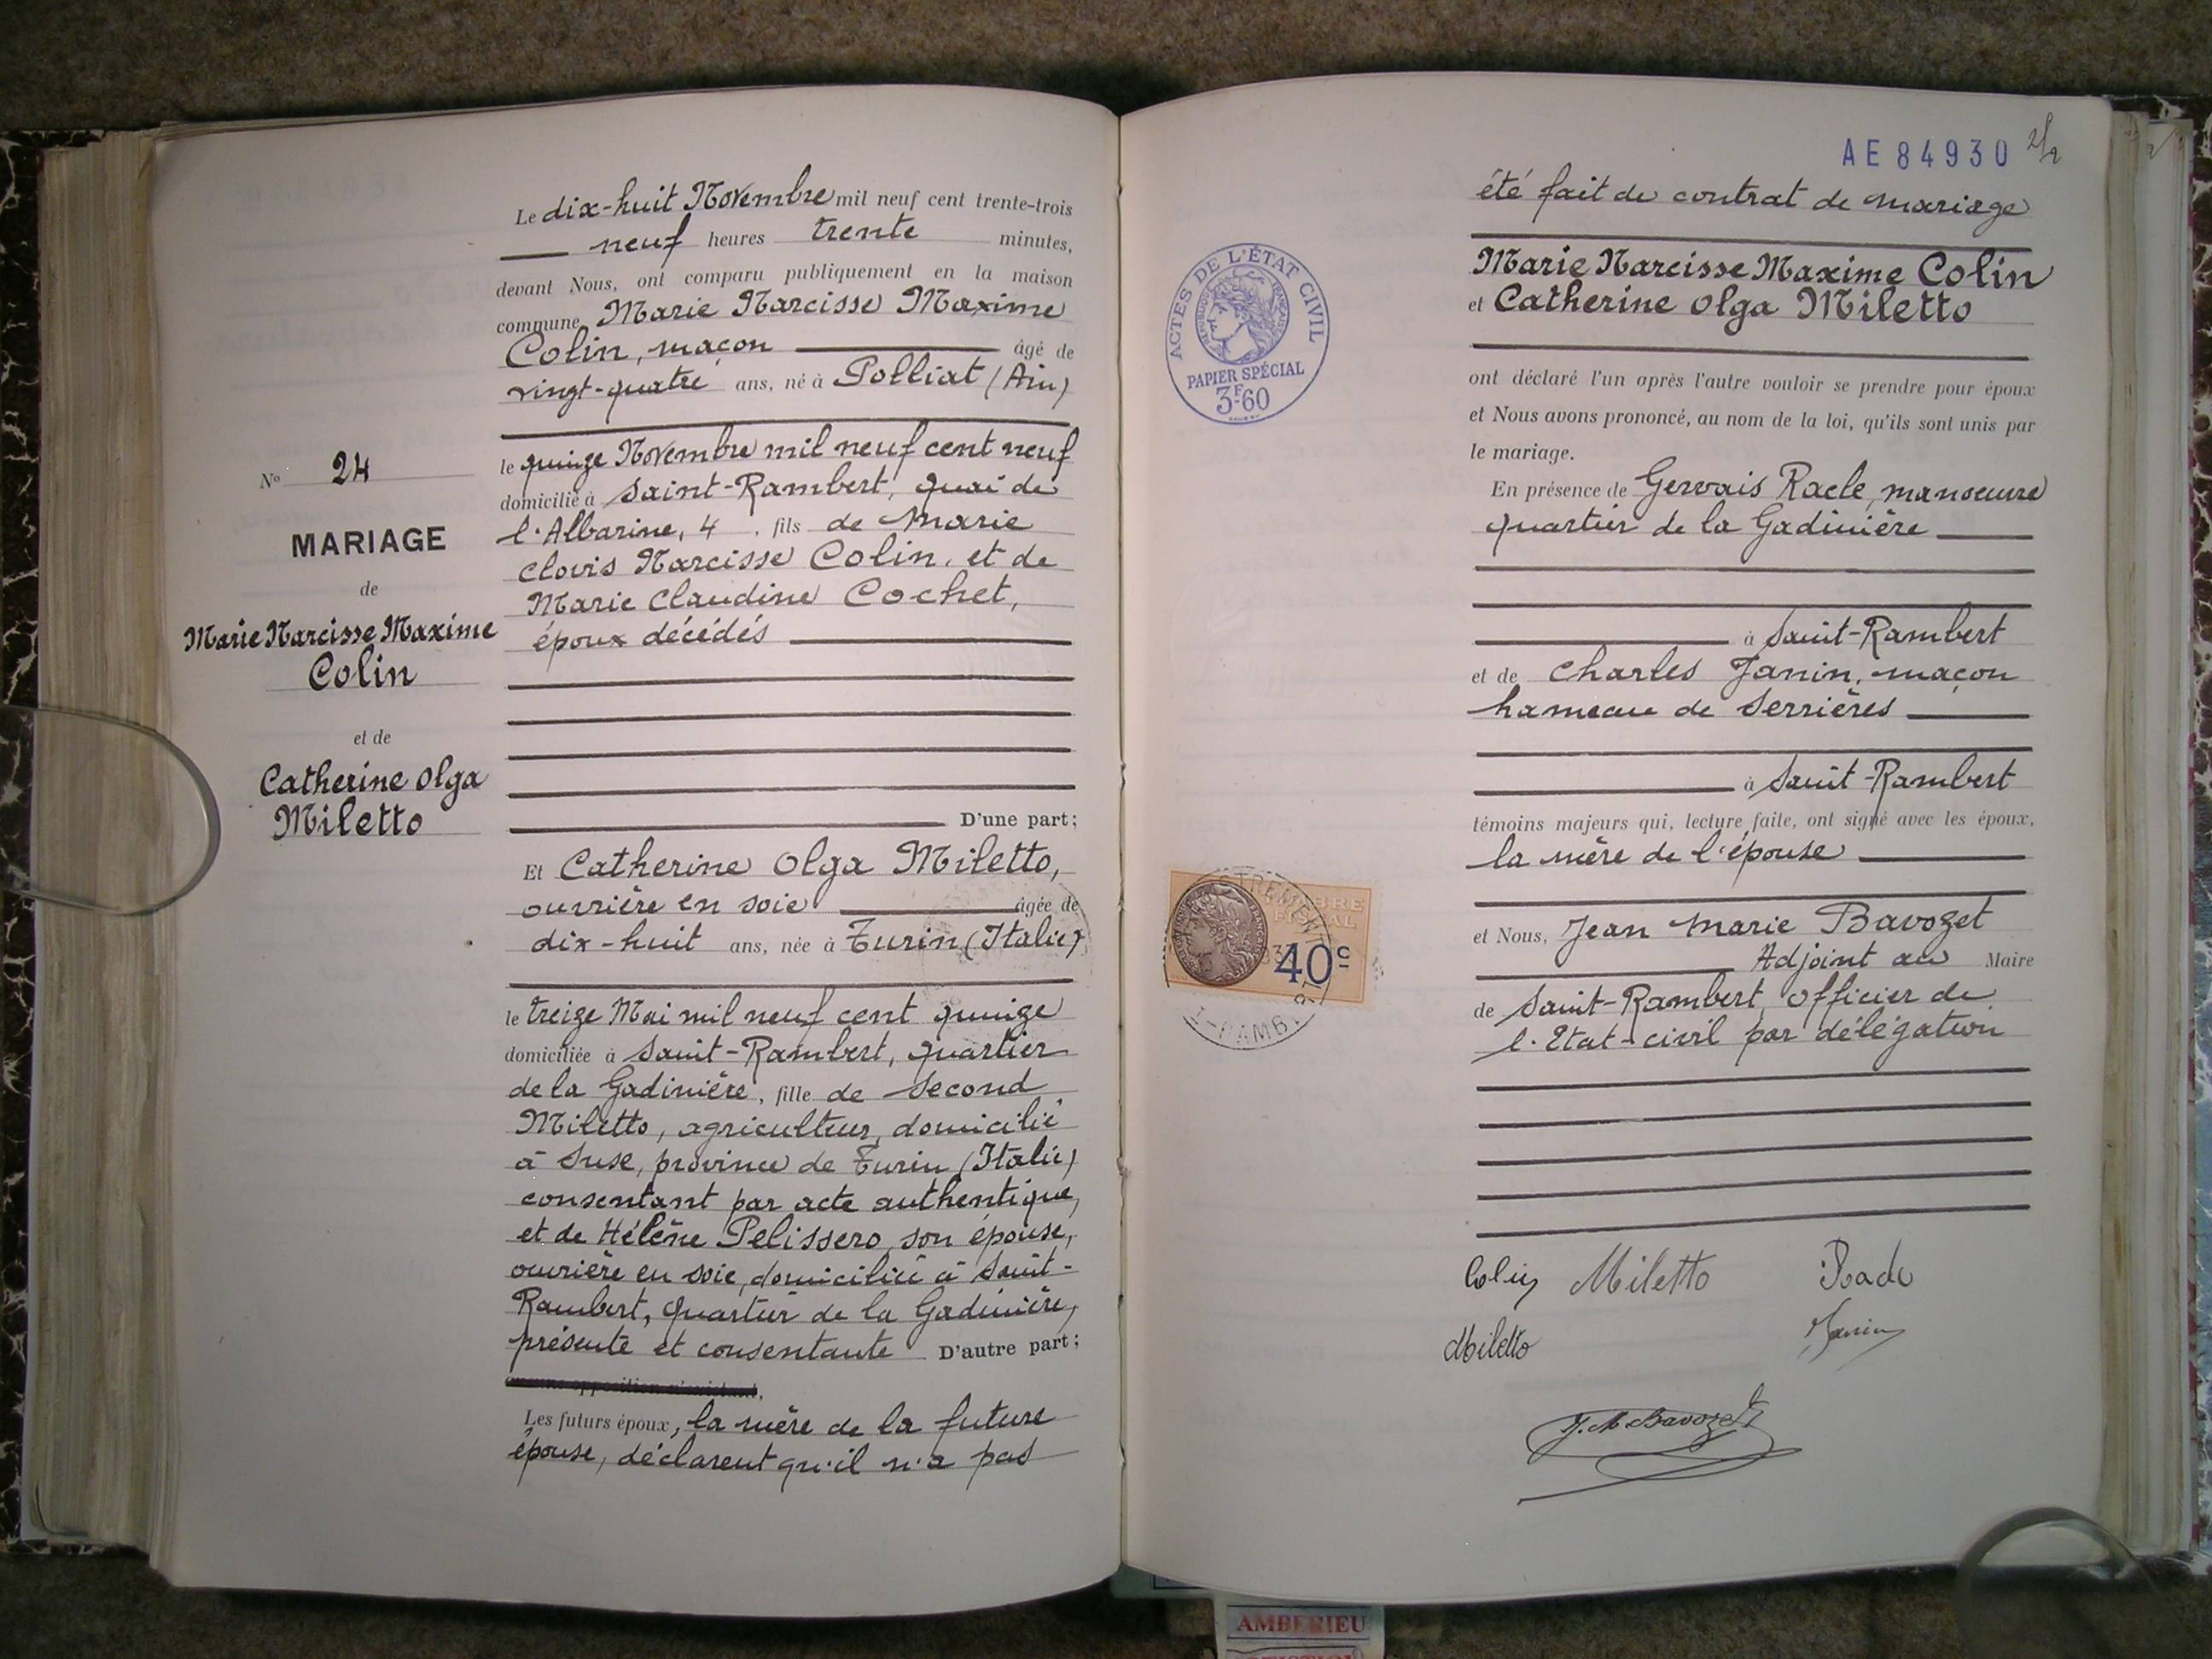 Le dix-huit Novembre mil neuf cent trente-trois
neuf heures trente minutes,
devant Nous, ont comparu publiquement en la maison
commune Marie Narcisse Maxime
Colin, maçon âgé de
vingt-quatre ans, né à Polliat (Ain)
le quinze Novembre mil neuf cent neuf
domicilié à Saint-Rambert, quai de
l'Albarine, 4, fils de Marie
Clovis Narcisse Colin, et de
Marie Claudine Cochet,
époux décédés
D'une part;
Et Catherine Olga Miletto,
ouvrière en soie âgée de
dix-huit ans, née à Turin (Italie)
le treize Mai mil neuf cent quinze
domiciliée à Saint-Rambert, quartier
de la Gadinière, fille de Second
Miletto, agriculteur, domicilié
à Suse, province de Turin (Italie)
consentant par acte authentique,
et de Hélène Pelissero, son épouse,
ouvrière en soie, domiciliée à Saint-
Rambert, quartier de la Gadinière,
présente et consentante D'autre part;
Les futurs époux, la mère de la future
épouse, déclarent qu'il n'a pas
No 24
MARIAGE
de
Marie Narcisse Maxime
Colin
et de
Catherine Olga
Miletto
AE 84930
été fait de contrat de mariage
Marie Narcisse Maxime Colin
et Catherine Olga Miletto
ont déclaré l'un après l'autre vouloir se prendre pour époux
et Nous avons prononcé, au nom de la loi, qu'ils sont unis par
le mariage.
En présence de Gervais Racle, manoeuvre
quartier de la Gadinière
à Saint-Rambert
et de Charles Janin, maçon
hameau de Serrières
à Saint-Rambert
témoins majeurs qui, lecture faite, ont signé avec les époux,
la mère de l'épouse
et Nous, Jean Marie Bavozet
Adjoint au Maire
de Saint-Rambert, Officier de
l'Etat-civil par délégation
Colin Miletto Racle
Miletto Janin
J. M. Bavozet
ACTES DE L'ÉTAT CIVIL
RÉPUBLIQUE FRANÇAISE
PAPIER SPÉCIAL
3F60
TIMBRE
FISCAL
40c
AMBERIEU